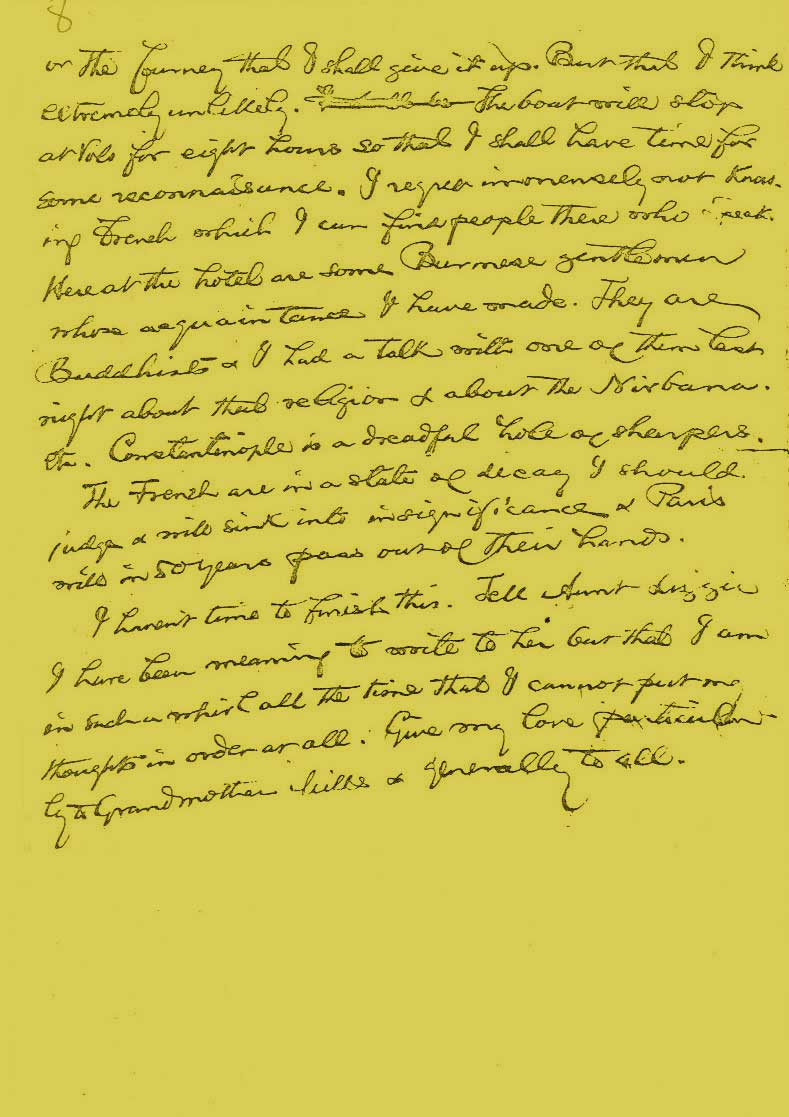 8
or the journey that I shall give it up. But that I think
extremely unlikely. The boat will stop
at Volo for eight hours so that I shall have time for
some reconnaisance. I regret immensely not know-
ing French which I can find people there who speak.
Here at the hotel are some Burmese gentlemen
whose acquaintance I have made. They are
Buddhists & I had a talk with one of them last
night about that religion & about the Nirbana.
etc. Constantinople is a dreadful hole of sharpers.
The French are in a state of decay I should
judge & will sink into insignificance & Paris
will in 50 years pass out of their hands.
I haven't time to finish this. Tell Aunt Lizzie
I have been meaning to write to her but that I am
in such a whirl all the time that I cannot put my
thoughts in order at all. Give my love particular-
ly to Grandmother & generally to all.